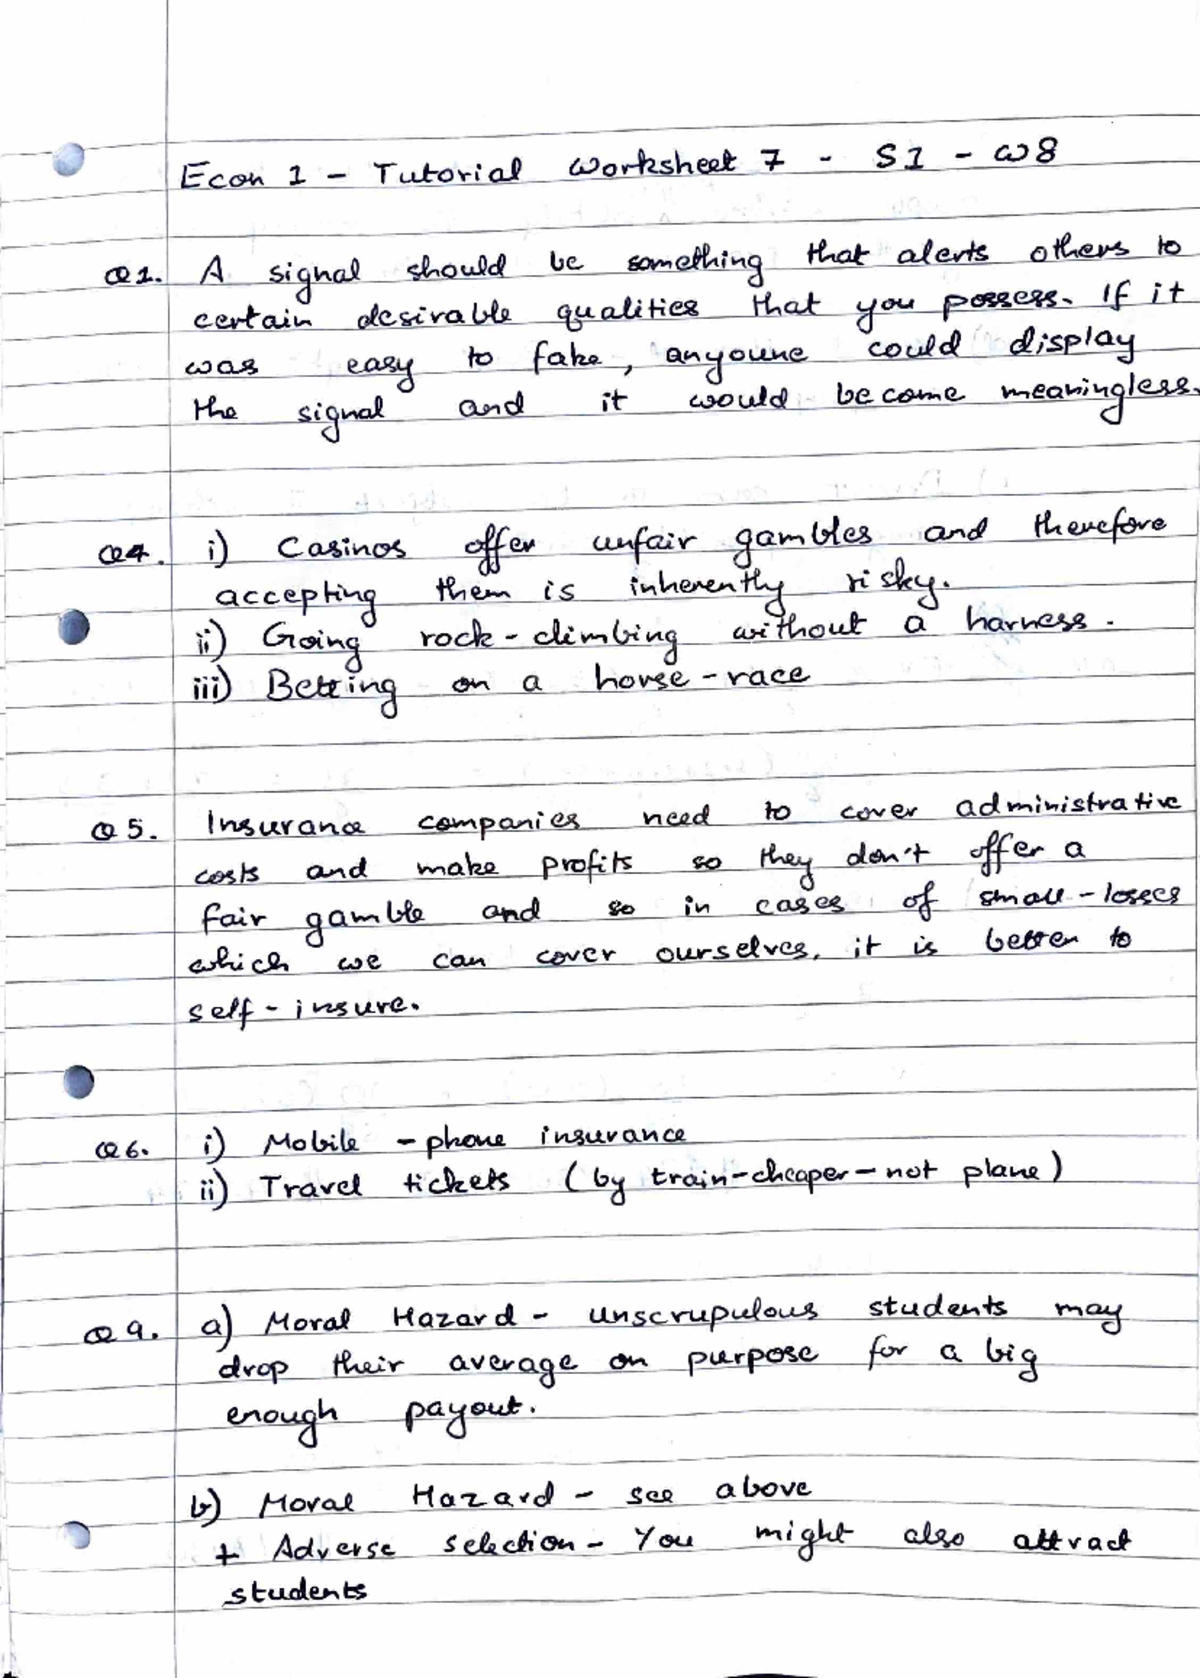 Econ 1 - Tutorial Worksheet 7 - S1 - W8
Q1. A signal should be something that alerts others to
certain desirable qualities that you possess. If it
was easy to fake, anyoune could display
the signal and it would become meaningless.
Q4. i) Casinos offer unfair gambles and therefore
accepting them is inherently risky.
ii) Going rock-climbing without a harness.
iii) Betting on a horse-race
Q5. Insurance companies need to cover administrative
costs and make profits so they don't offer a
fair gamble and so in cases of small-losses
which we can cover ourselves, it is better to
self-insure.
Q6. i) Mobile-phone insurance
ii) Travel tickets (by train-cheaper-not plane)
Q9. a) Moral Hazard - unscrupulous students may
drop their average on purpose for a big
enough payout.
b) Moral Hazard - see above
+ Adverse selection - You might also attract
students